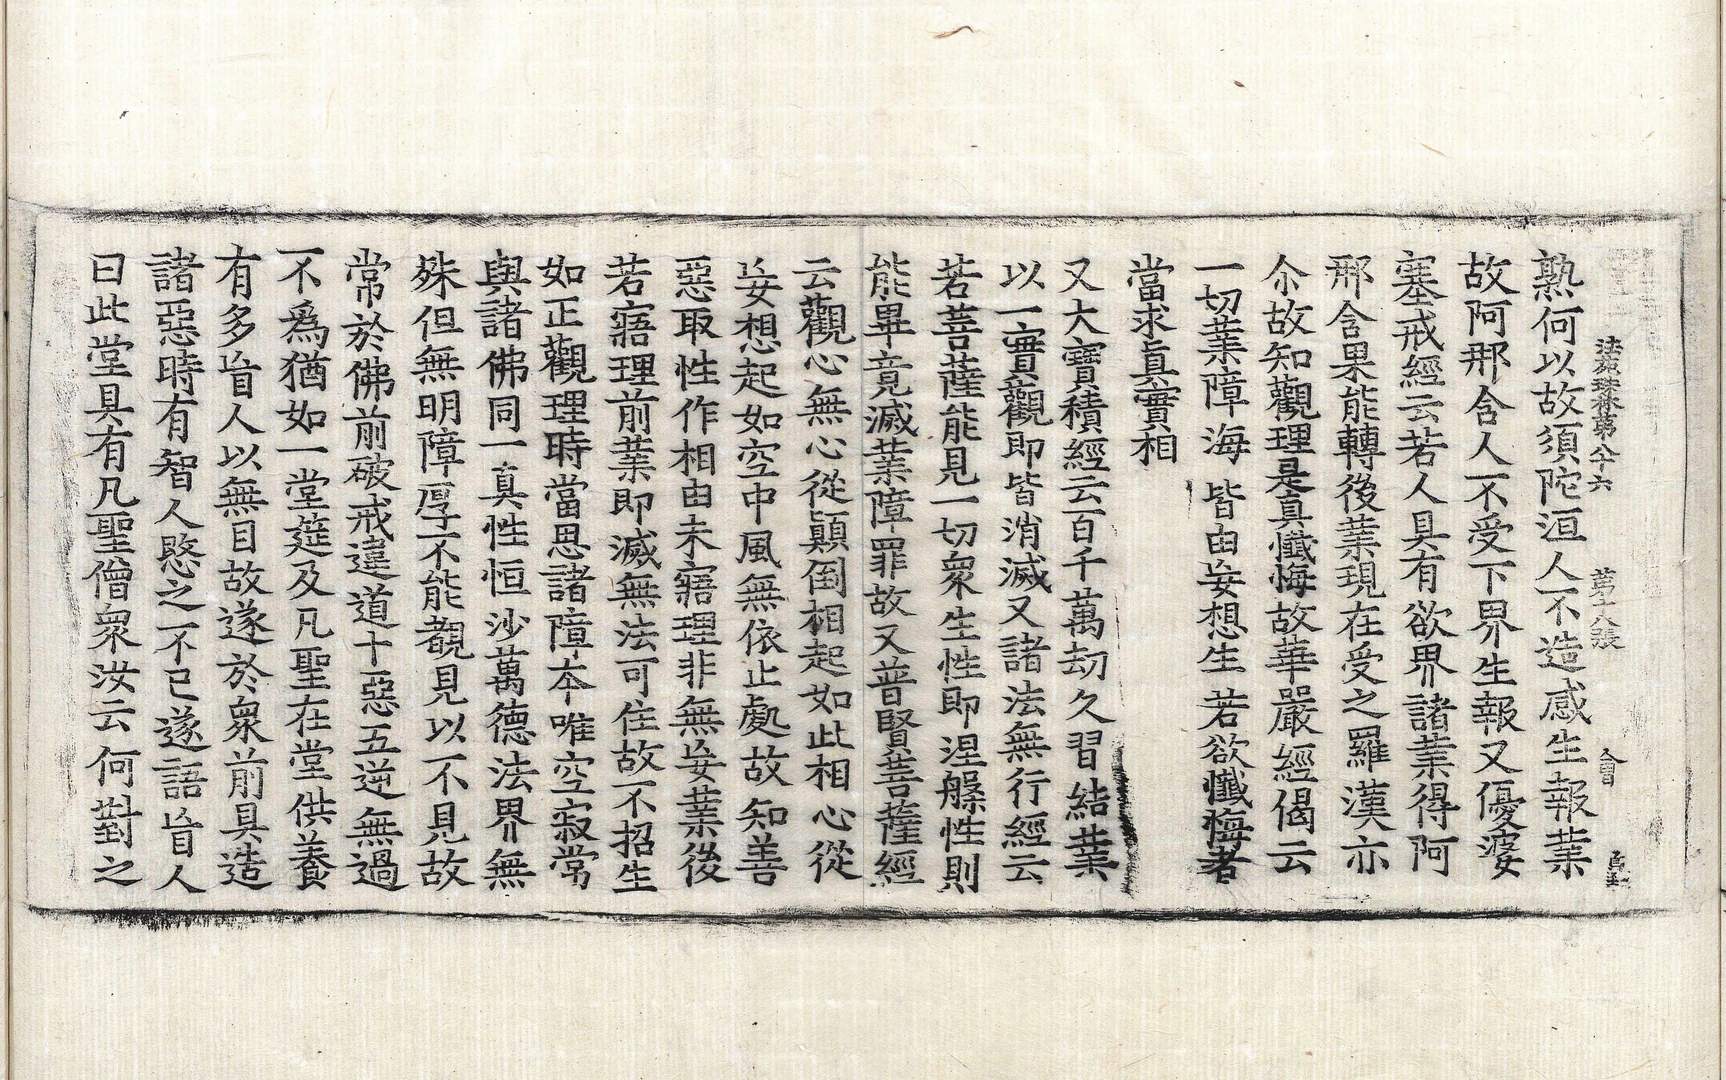 法苑珠林第八十六　第十六張　會
熟何以故須陀洹人不造感生報業
故阿那含人不受下界生報又優婆
塞戒經云若人具有欲界諸業得阿
那含果能轉後業現在受之羅漢亦
尒故知觀理是真懺悔故華嚴經偈云
一切業障海皆由妄想生若欲懺悔者
當求真實相
又大寶積經云百千萬劫久習結業
以一實觀即皆消滅又諸法無行經云
若菩薩能見一切衆生性即涅槃性則
能畢竟滅業障罪故又普賢菩薩經
云觀心無心從顛倒相起如此相心從
妄想起如空中風無依止處故知善
惡取性作相由未寤理非無妄業後
若寤理前業即滅無法可住故不招生
如正觀理時當思諸障本唯空寂常
與諸佛同一真性恒沙萬德法界無
殊但無明障厚不能觀見以不見故
常於佛前破戒違道十惡五逆無過
不爲猶如一堂筵及凡聖在堂供養
有多盲人以無目故遂於衆前具造
諸惡時有智人愍之不已遂語盲人
曰此堂具有凡聖僧衆汝云何對之